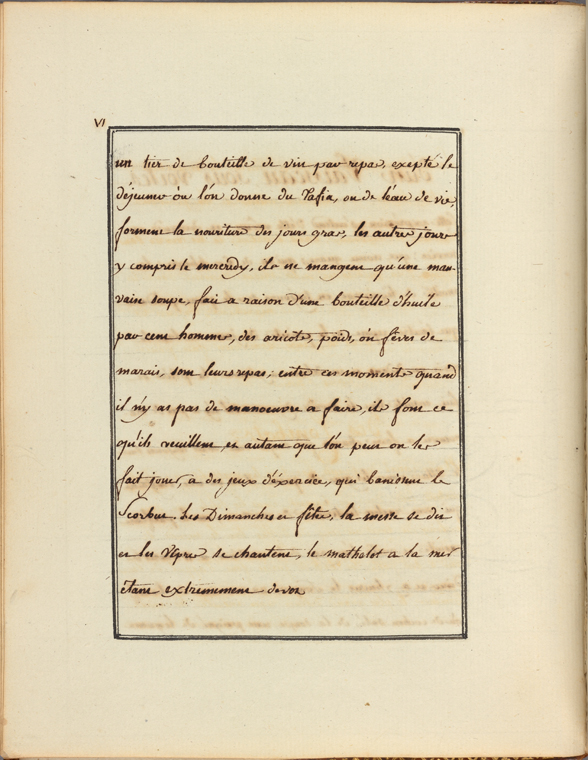 VI
un tier de bouteille de vin par repas, exepté le
déjeuner òu l'ón donne du Tafia, ou de l'eau de vie,
forment la nouriture des jours gras, les autres jours
y compris le mercredy, ils ne mangent qu'une mau-
vaise soupe, fait a raison d'une bouteille d'huile
par cent hommes, des aricots, poids, ón fêves de
marais, sont leurs repas; entre ces moments quand
il n'y as pas de manoeuvre a faire, ils font ce
qu'ils veuillent, et autant que l'ón peut on les
fait jouer, a des jeux d'éxercice, qui banissent le
Scorbut. Les Dimanches et fêtes, la messe se dit
et les Vêpres se chantent, le mathelot a la mer
étant extremement devot